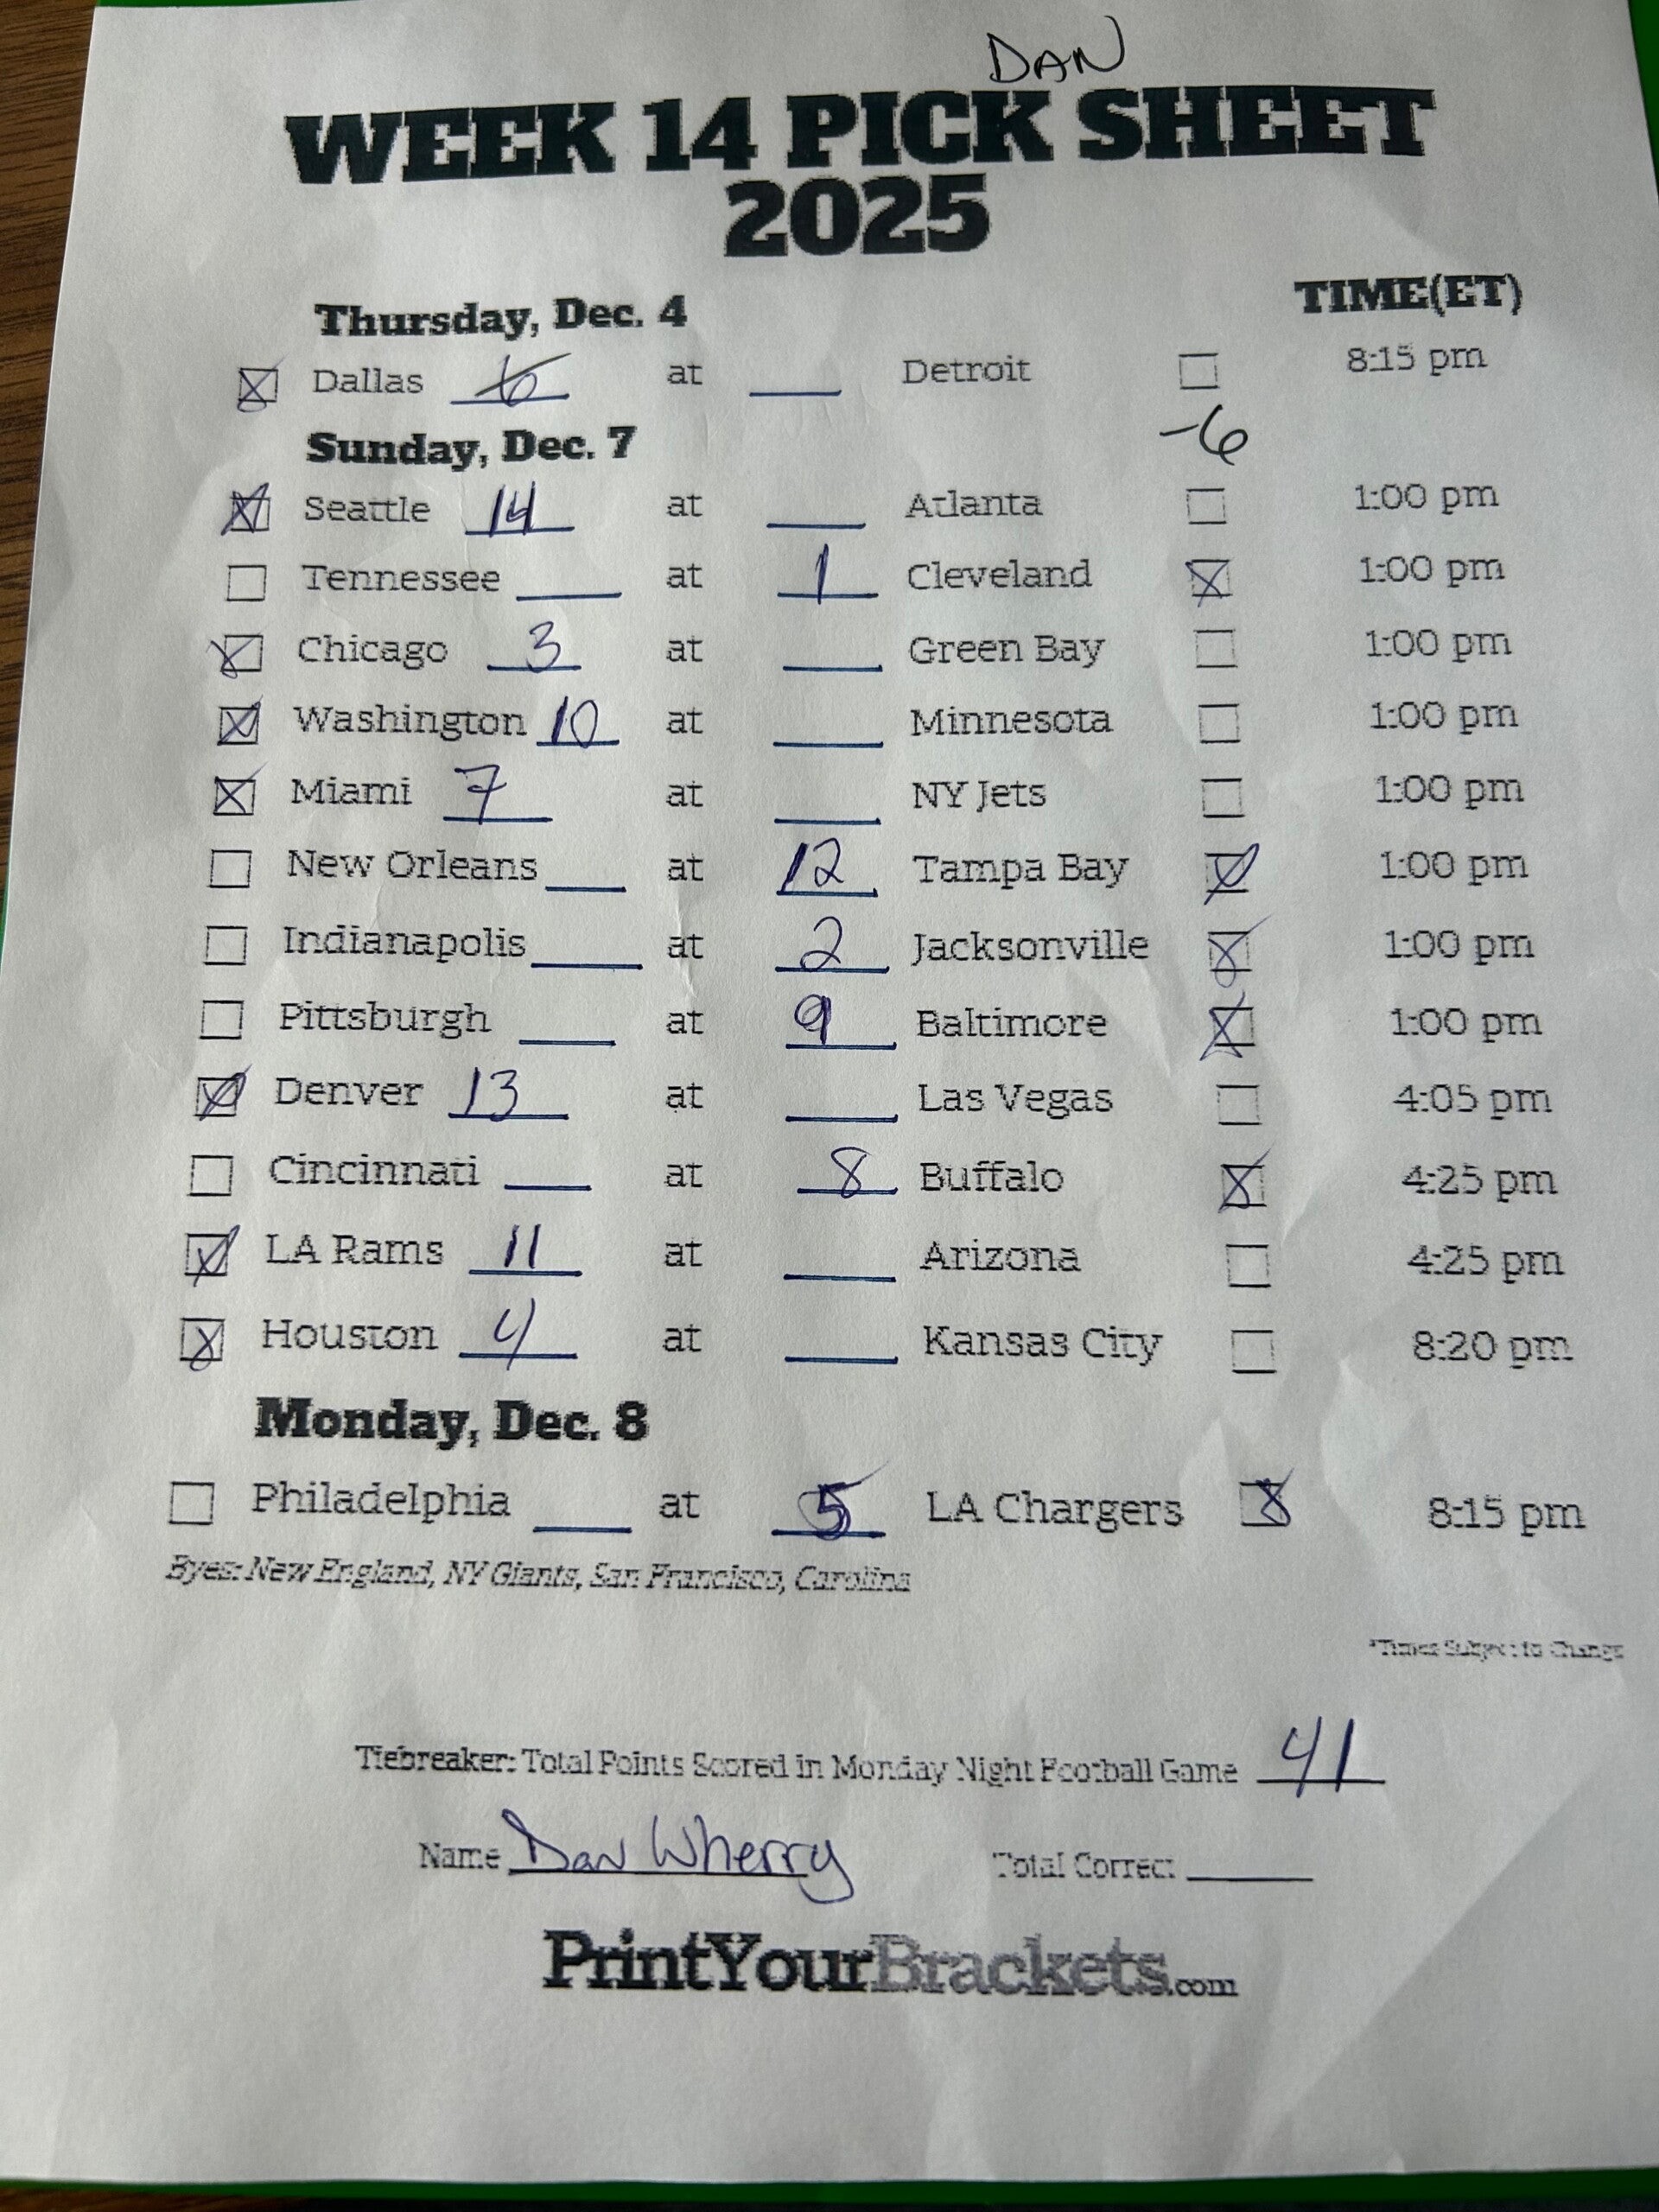 DAN
WEEK 14 PICK SHEET
2025
TIME(ET)
Thursday, Dec. 4
Dallas 6 at Detroit 8:15 pm
-6
Sunday, Dec. 7
Seattle 14 at Atlanta 1:00 pm
Tennessee at 1 Cleveland 1:00 pm
Chicago 3 at Green Bay 1:00 pm
Washington 10 at Minnesota 1:00 pm
Miami 7 at NY Jets 1:00 pm
New Orleans at 12 Tampa Bay 1:00 pm
Indianapolis at 2 Jacksonville 1:00 pm
Pittsburgh at 9 Baltimore 1:00 pm
Denver 13 at Las Vegas 4:05 pm
Cincinnati at 8 Buffalo 4:25 pm
LA Rams 11 at Arizona 4:25 pm
Houston 4 at Kansas City 8:20 pm
Monday, Dec. 8
Philadelphia at 5 LA Chargers 8:15 pm
Byes: New England, NY Giants, San Francisco, Carolina
*Times Subject to Change
Tiebreaker: Total Points Scored in Monday Night Football Game 41
Name Dan Wherry Total Correct
PrintYourBrackets.com